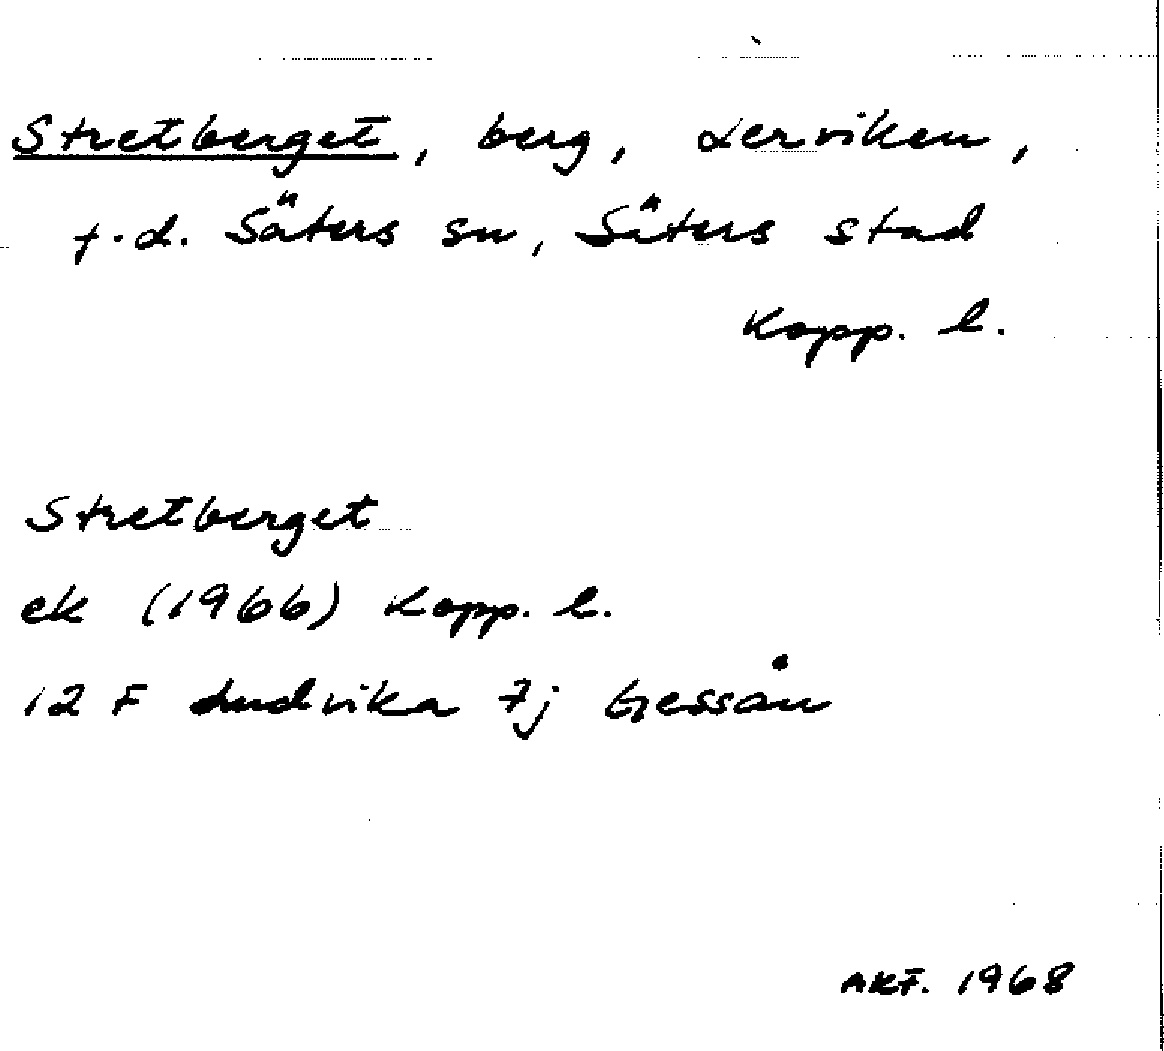 Stretberget, berg, Lerviken,
f.d. Säters sn, Säters stad
Kopp. l.
Stretberget
ek (1966) Kopp. l.
12 F Ludvika 7j Gessån
AKF. 1968